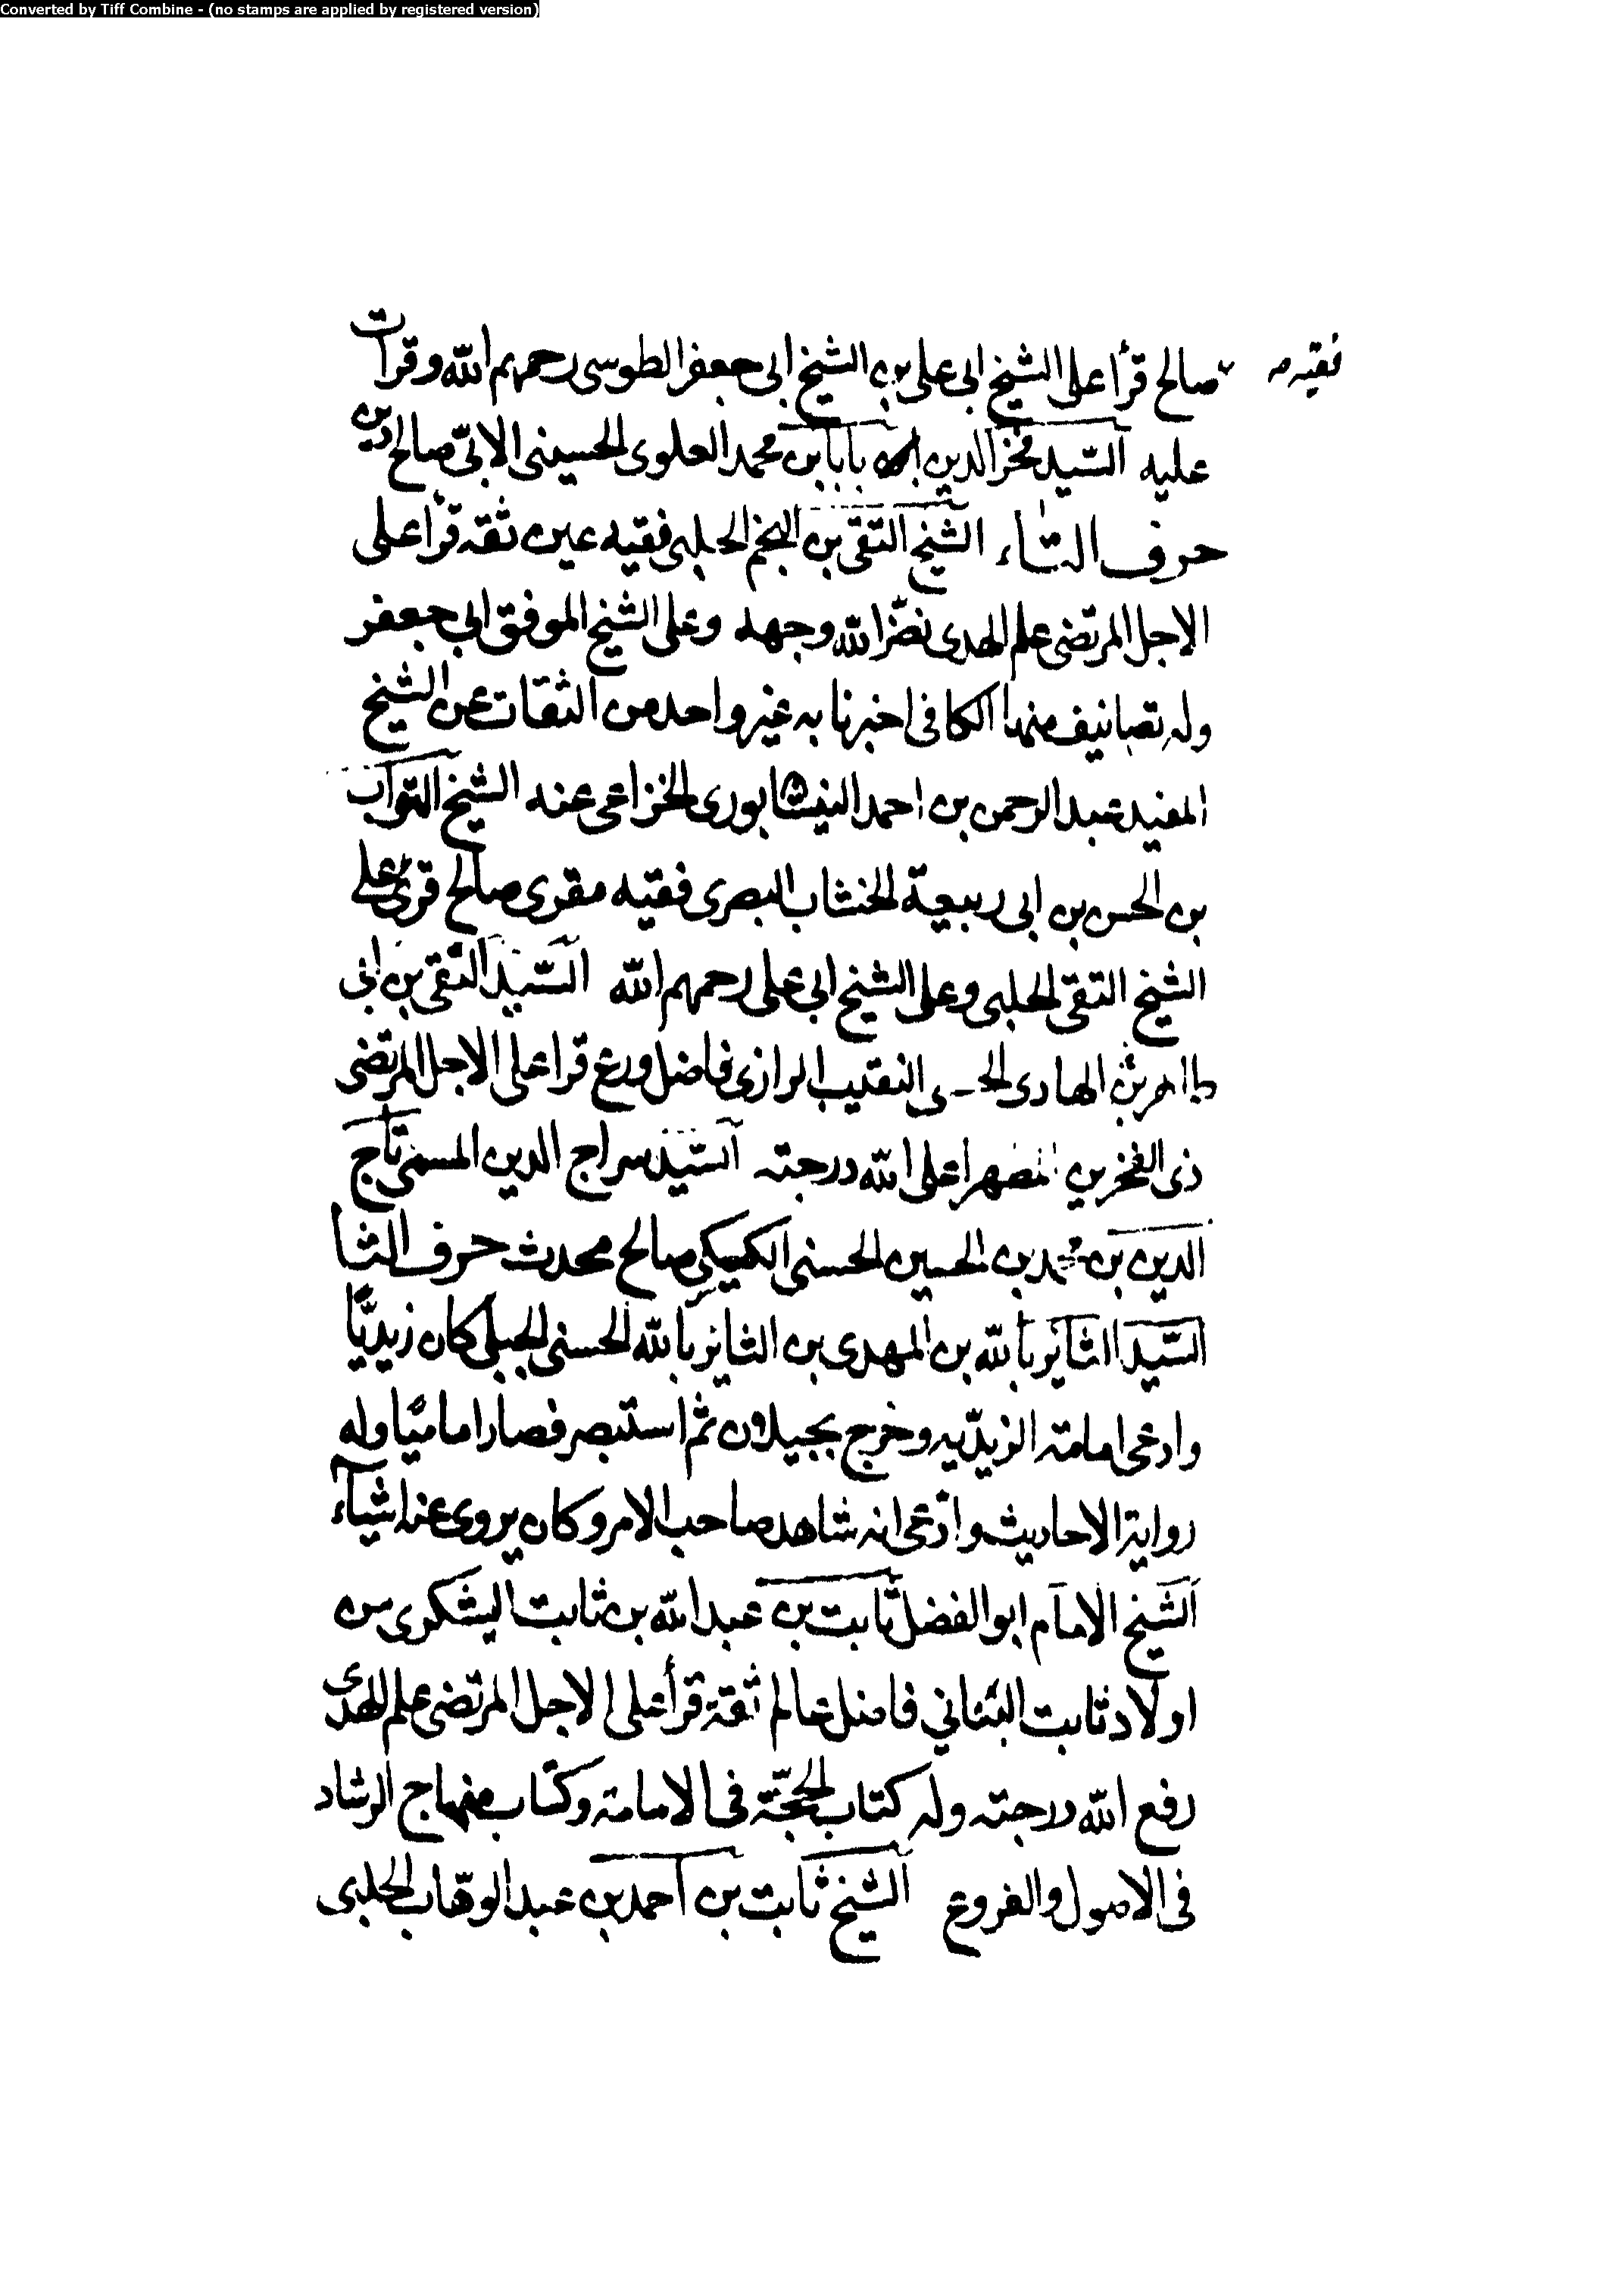 Converted by Tiff Combine - (no stamps are applied by registered version)
فقيه صح
صالح قرأ على الشيخ ابى على بن الشيخ ابى جعفر الطوسى رحمهم الله وقرات
عليه السيد فخر الدين بابا بن محمد العلوى الحسينى الابى صالح دين
حرف التاء الشيخ التقى بن النجم الحلبى فقيه عين ثقه قرأ على
الاجل المرتضى علم الهدى نضر الله وجهه وعلى الشيخ الموفق ابى جعفر
وله تصانيف منها الكافى اخبرنا به غير واحد من الثقات عن الشيخ
المفيد عبد الرحمن بن احمد النيشابورى الخزاعى عنه الشيخ التواب
بن الحسن بن ابى ربيعة الخشاب البصرى فقيه مقرى صالح قرئ على
الشيخ التقى الحلبى وعلى الشيخ ابى على رحمهم الله السيد التقى بن ابى
طاهر بن الهادى النقيب الرازى فاضل ورع قرا على الاجل المرتضى
ذى الفخرين المطهر اعلى الله درجته السيد سراج الدين المسمى تاج
الدين بن محمد بن الحسين الحسنى الكيكى صالح محدث حرف الثا
السيد الثائر بالله بن المهدى بن الثاير بالله الحسنى الجبلى كان زيديًا
وادعى امامة الزيديه وخرج بجيلان ثم استبصر فصار اماميًا وله
رواية الاحاديث وادعى انه شاهد صاحب الامر وكان يروى عنه اشياء
الشيخ الامام ابو الفضل ثابت بن عبد الله بن ثابت اليشكرى من
اولاد ثابت البنانى فاضل عالم ثقة قرأ على الاجل المرتضى علم الهدى
رفع الله درجته وله كتاب الحجة فى الامامة وكتاب منهاج الرشاد
فى الاصول والفروع الشيخ ثابت بن احمد بن عبد الوهاب الحلبى